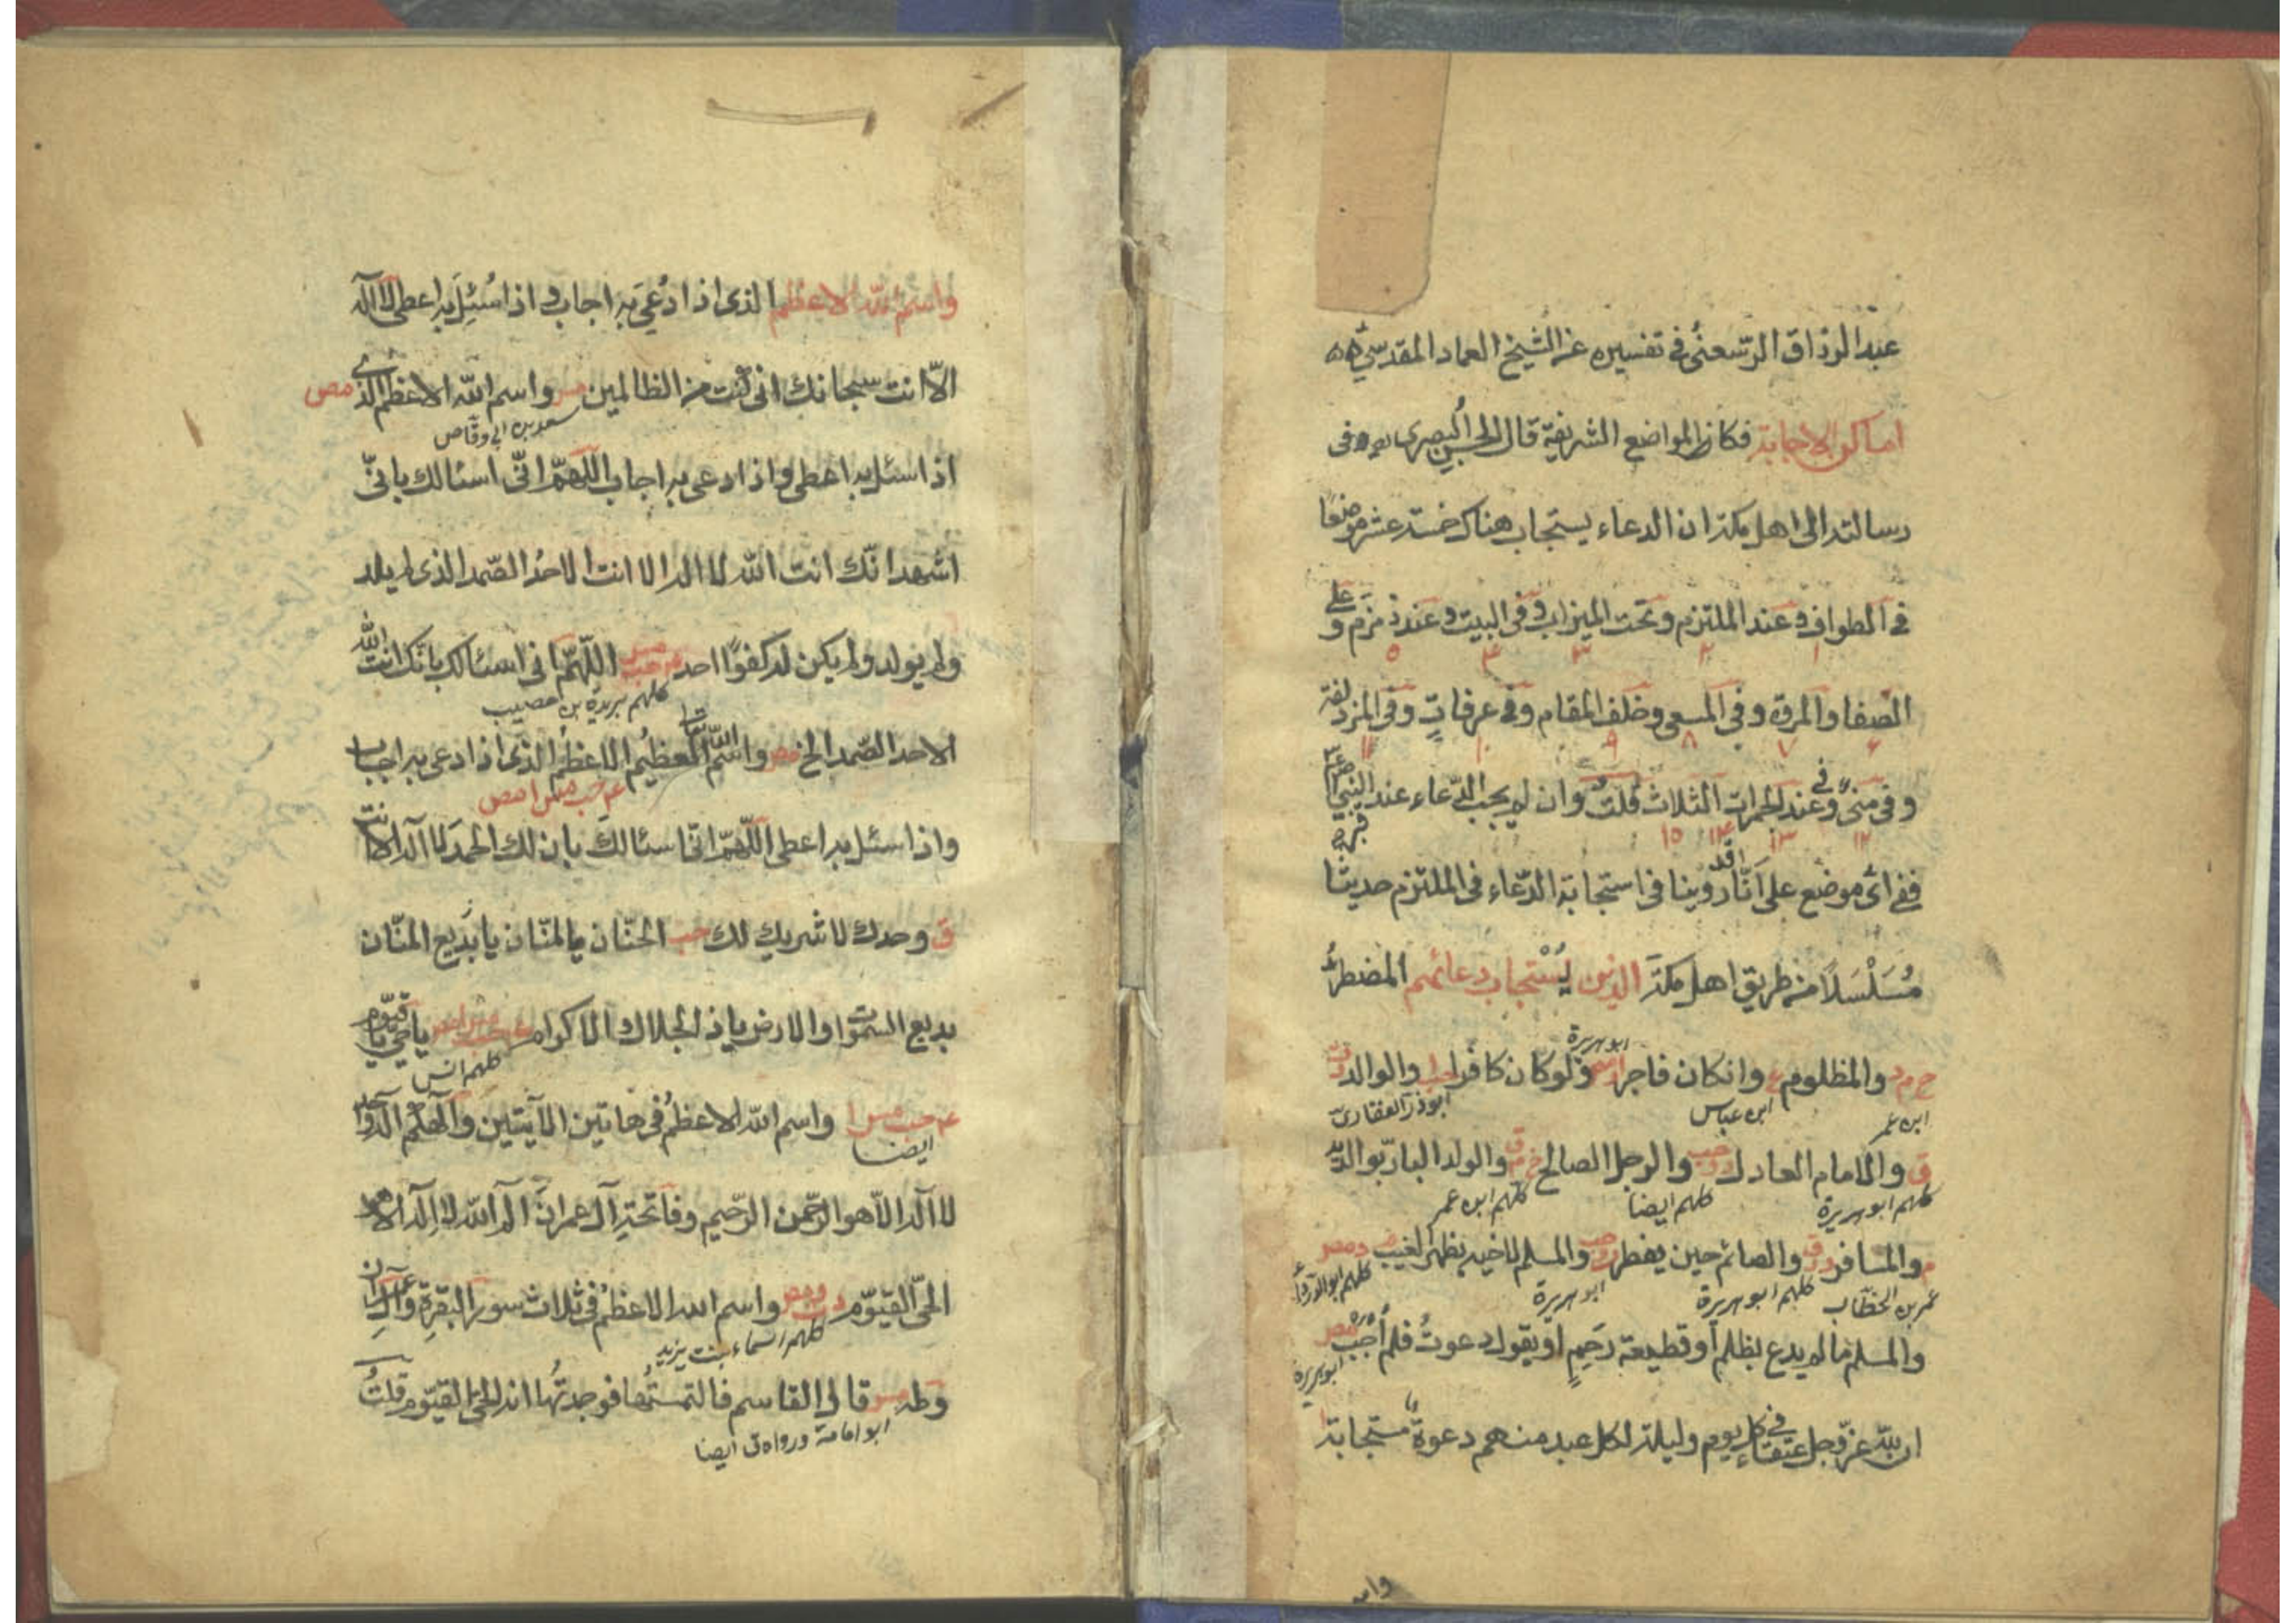 عبد الرزاق الرسعنى فى تفسيره عن الشيخ العماد المقدسى
اماكن الاجابة فكان المواضع الشريفة قال الحسن البصرى فى
رسالته الى اهل مكة ان الدعاء يستجاب هناك خمسة عشر موضعا
فى الطواف وعند الملتزم وتحت الميزاب وفى البيت وعند زمزم وعلى
١ ٢ ٣ ٤ ٥
الصفا والمروة وفى المسعى وخلف المقام وفى عرفات وفى المزدلفة
۶ ٧ ٨ ٩ ١٠ ١١
وفى منى وعند الجمرات الثلاث قلت وان لم يجب الدعاء عند النبى
قبره
١٢ ١٣ ١۴ ١٥
ففى اى موضع على انا قد روينا فى استجابة الدعاء فى الملتزم حديثا
مُسَلْسَلًا من طريق اهل مكة الذين يُسْتجاب دعائهم المضطر
ابو هريرة
خ م د والمظلوم ع وانكان فاجرا ولوكان كافرا حب والوالد
ابن عمر ابن عباس ابوذر الغفارى
ق والامام العادل والرجل الصالح خ م ق والولد البار بوالديه
كلهم ابو هريرة كلهم ايضا كلهم ابن عمر
م والمسافر والصائم حين يفطر والمسلم لاخيه بظهر الغيب م د مص
عمر بن الخطاب كلهم ابو هريرة ابو هريرة كلهم ابو الدرداء
والمسلم ما لم يدع بظلم او قطيعة رَحِمٍ او يقول دعوتُ فلم أُجب مص
ابو هريرة
ان لله عز وجل عتقاء فى كل يوم وليلة لكل عبد منهم دعوة مستجابة
واسم
واسم الله الاعظم الذى اذا دُعِىَ به اجاب و اذا سُئِلَ به اعطى لا اله
الّا انت سبحانك انى كنت من الظالمين مس واسم الله الاعظم الذى مص
سعد بن ابى وقاص
اذا سئل به اعطى واذا دعى به اجاب اللّهمّ انّى اسئالك بانّى
اشهد انّك انت الله لا اله الا انت الاحدُ الصّمد الذى لم يلد
ولم يولد ولم يكن له كفوًا احد عه حب مس اللّهمّ انى اسئالك بانك انت الله
كلهم بريدة بن حصيب
الاحد الصّمد الخ مص واسم الله تعالى العظيم الاعظم الذى اذا دعى به اجاب
عه حب مس ا مص
واذا سئل به اعطى اللّهمّ انّى اسئالك بان لك الحمد لا اله الا انت
ق وحدك لا شريك لك حب الحنّان يا المنّان يا بديع المنّان
بديع السموات والارض يا ذا الجلال والاكرام عه حب مس ا مص يا حى يا قيوم
كلهم انس
عه حب مس ا واسم الله الاعظمُ فى هاتين الآيتين والهكم اله واحد
ايضا
لا اله الّا هو الرحمن الرّحيم وفاتحةِ آل عمران الم الله لا اله الا هو
الحى القيّوم د ت ق مص واسم الله الاعظم فى ثلاث سور البقرة وآل عمران
كلهم اسماء بنت يزيد
وطه مس قال القاسم فالتمستُها فوجدتُّها انه الحىّ القيّوم قلتُ
ابو امامة ورواه ق ايضا